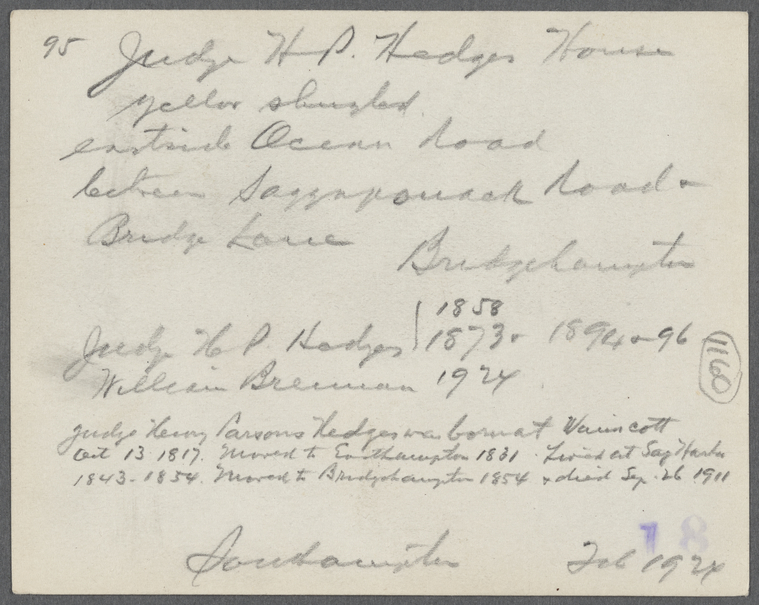 95 Judge H. P. Hedges House
yellow shingled
east side Ocean Road
between Saggaponack Road &
Bridge Lane
Bridgehampton
1858
Judge H. P. Hedges 1873 & 1894 & 96
1160
William Brennan 1924
Judge Henry Parsons Hedges was born at Wainscott
Oct 13 1817. Moved to Easthampton 1831. Lived at Sag Harbor
1843-1854. Moved to Bridgehampton 1854 & died Sep. 26 1911
18
Southampton Feb 1924